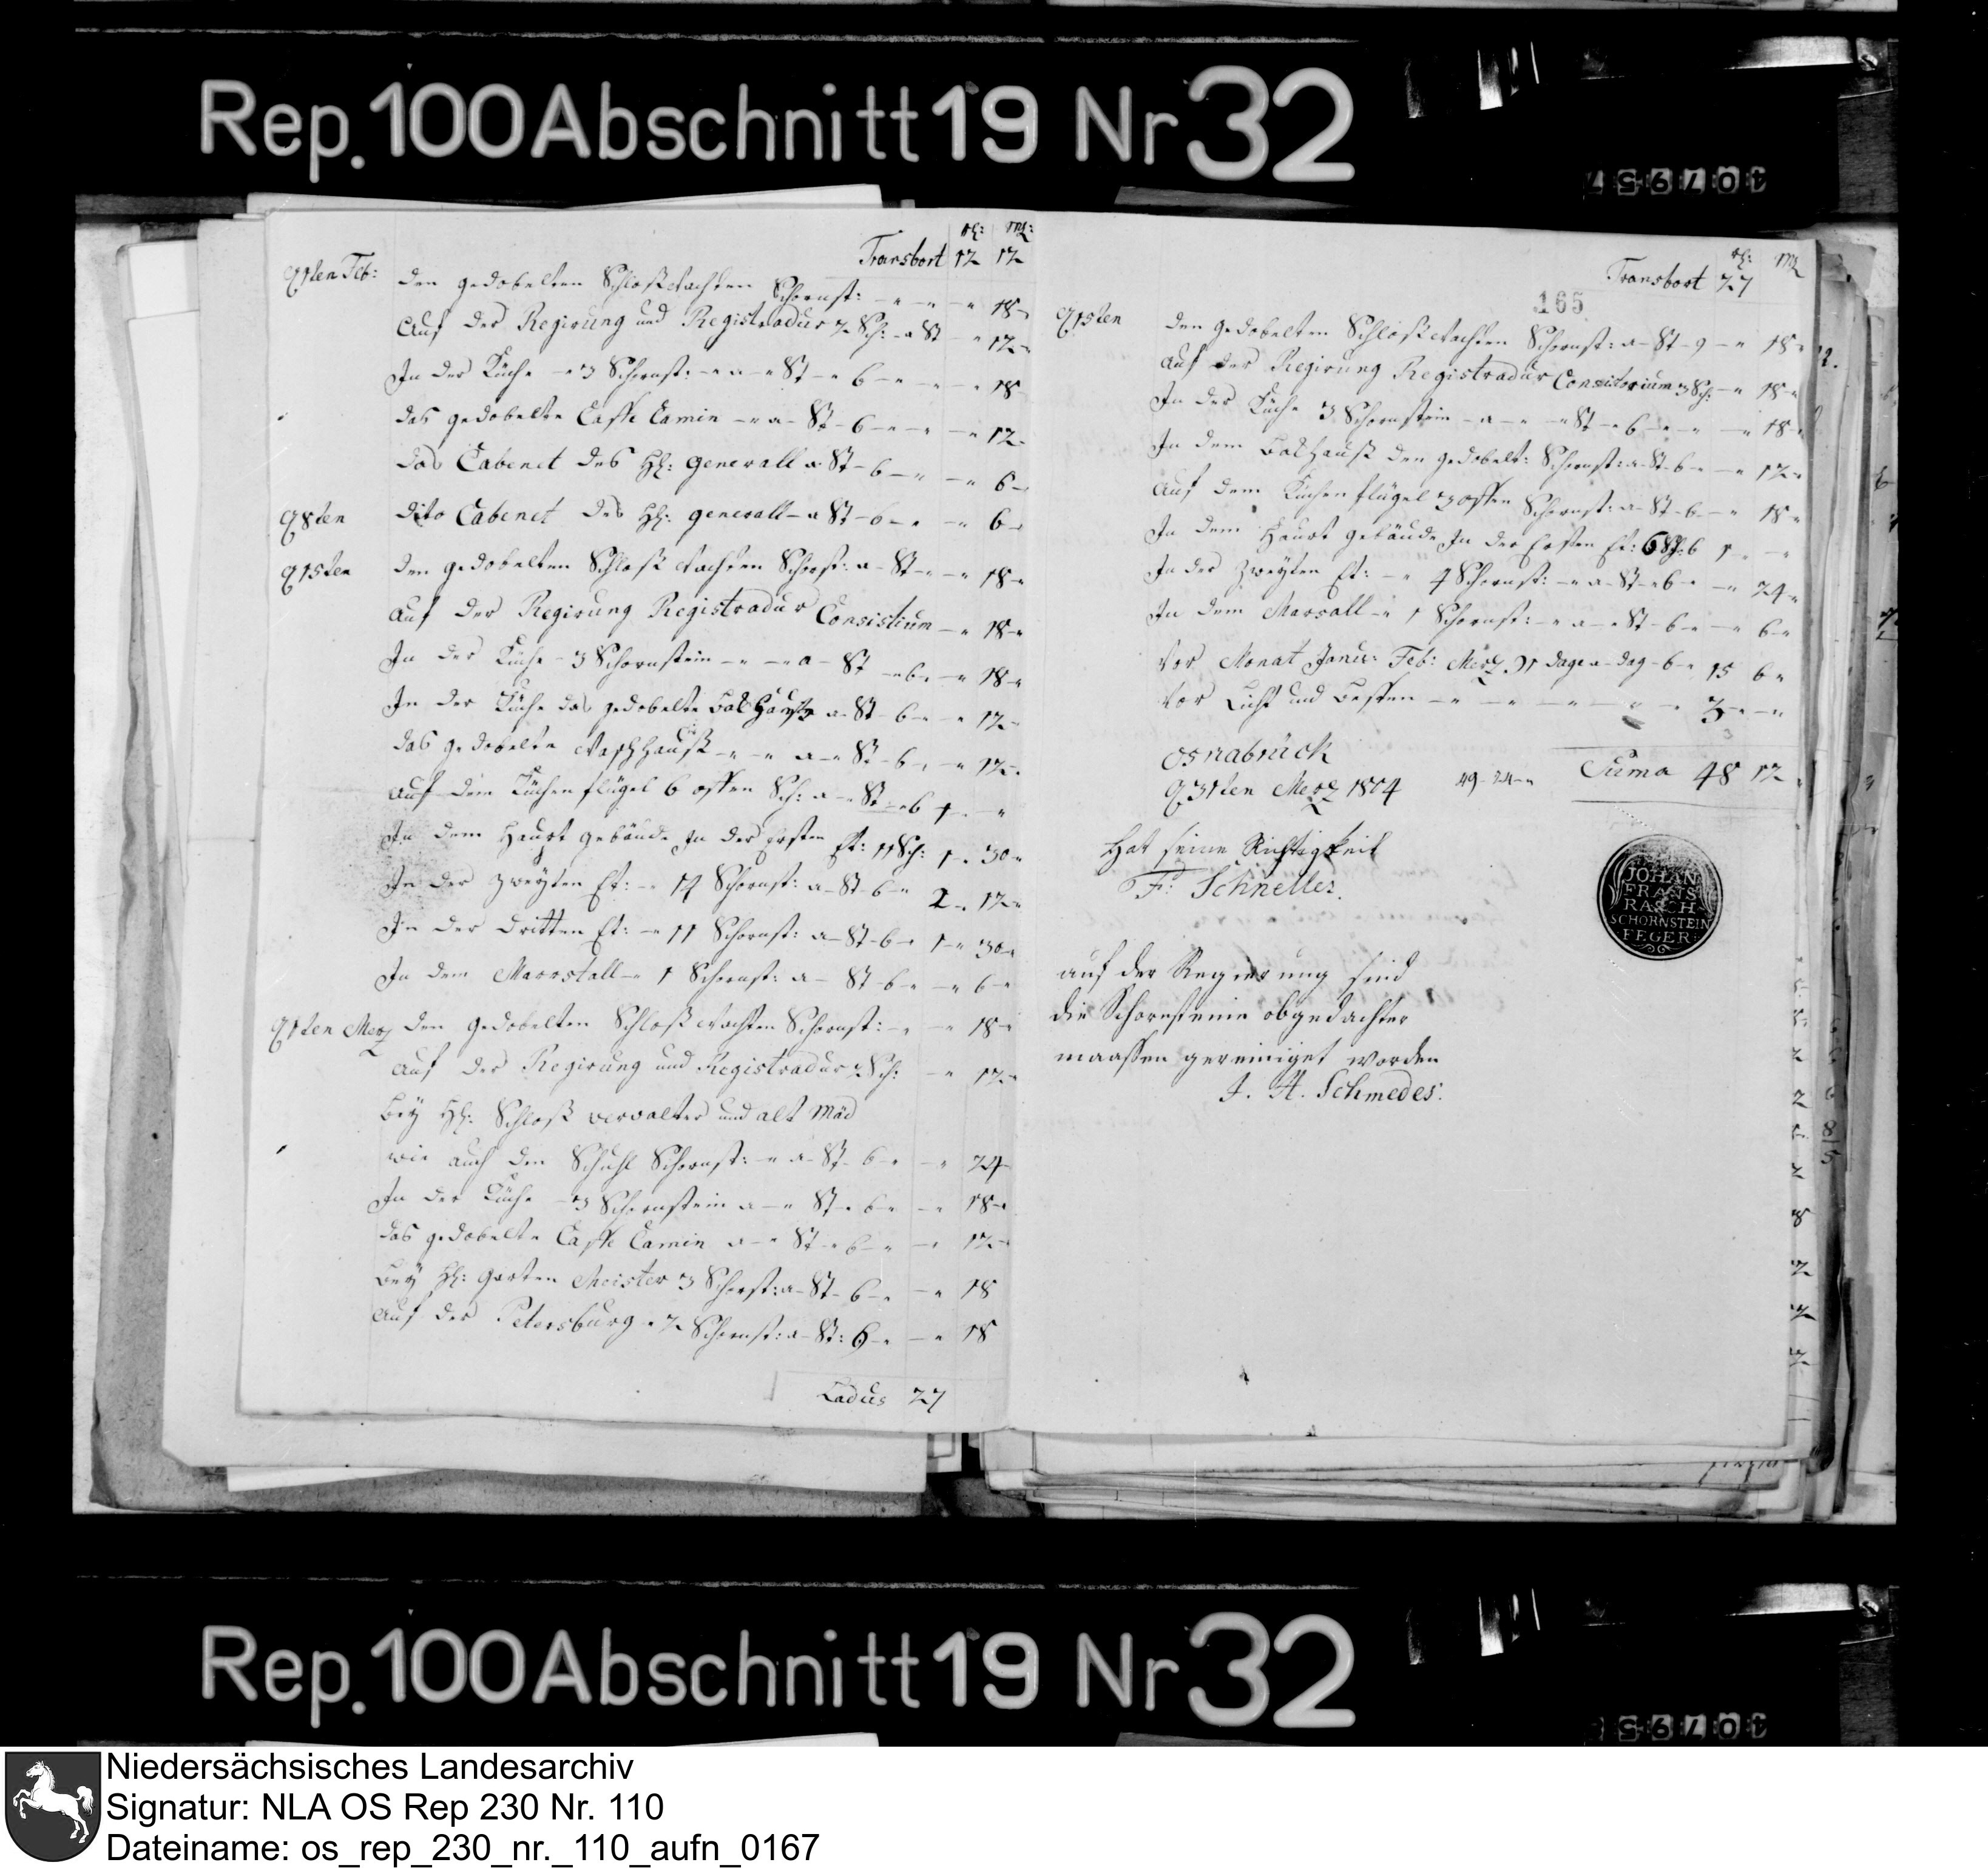 Rep. 100 Abschnitt 19 Nr 32
407957
rh: Mg:
Transbort 12 12
d 1sten Feb: den gedobelten Schloßwachten Schornst: - " - " - " 18 -
Auf der Regirung und Registradur 2 Sch: - a St - " 12 - "
In der Küche - " 3 Schornst: - " a - " St - " 6 - " - " - " 18
das gedobelte Caffe Camin - " a - St - 6 - " - " - " 12 -
das Cabenet des HH: generall a St - 6 - " - " 6 -
d 8ten dito Cabenet des HH: generall - a St - 6 - " - " 6 -
d 15ten den gedobelten Schloß wachten Schorst: a - St - " - " 18 - "
Auf der Regirung Registradur Consistium - " 18 - "
In der Küche - 3 Schornstein - " - " a - St - " 6 - " - " 18 - "
In der Küche das gedobelte Bak Hauß a - St - 6 - " - " 12 -
das gedobelte Waschhauß - " - " a - " St - 6 - " - " 12 -
Auf dem Küchen flügel 6 offen Sch: a - " St - " 6 1 - " - "
In dem Haupt gebäude In der ersten Et: 11 Sch: 1 - " 30 - "
In der zweyten Et: - " 14 Schornst: a - St - 6 - " 2 - " 12 - "
In der dritten Et: - " 11 Schornst: a - St - 6 - " 1 - " 30 - "
In dem Marrstall - " 1 Schornst: a - St - 6 - " - " 6 - "
d 1sten Merz den gedobelten Schloß wachten Schornst: - " - " 18 - "
Auf der Regirung und Registradur 2 Sch: - " 12 - "
Bey HH: Schloß verwalter und alt Mäd
wie auch den Schuhl Schornst: - " a - St - 6 - " - " 24 -
In der Küche - 3 Schornstein a - " St - " 6 - " - " 18 - "
das gedobelte Caffe Camin a - " St - " 6 - " - " 12 -
Bey HH: Garten Meister 3 Schorst: a - St - 6 - " - " 18
Auf der Petersburg - " 2 Schornst: a - St: 6 - " - " 18
Ladus 27
rh: Mg
Transbort 27
165
d 15ten den gedobelten Schloß wachten Schornst: a - St - 9 - " 18 - "
Auf der Regirung Registradur Consitorium 3 Sch: - " 18 - "
In der Küche 3 Schornstein - a - " - " St - " 6 - " - " - " 18 - "
In dem Bakhauß den gedobelt: Schornst: a - St - 6 - " - " 12 - "
Auf dem Küchen flügel 3 offen Schornst: a - St - 6 - " 18 - "
In dem Haupt gebäude In der Ersten Et: 6 Sch: 6 1 - " - "
In der zweyten Et: - " 4 Schornst: - " a - St - " 6 - " - " 24 - "
In dem Marsall - " 1 Schornst: - " a - " St - 6 - " - " 6 - "
Vor Monat Janur: Feb: Merz 91 dage a - dag - 6 - " 15 6 - "
Vor Licht und Bessen - " - " - " - " - " 3 - " - "
Osnabrück
d 31ten Merz 1814 49 - 24 - " Suma 48 12
Hat seine Richtigkeit
F: Schneller.
JOHAN
FRANS
RASCH
SCHORNSTEIN
FEGER
auf der Regierung sind
die Schornsteine obgedachter
maassen gereiniget worden
J. H. Schmedes:
Rep. 100 Abschnitt 19 Nr 32
Niedersächsisches Landesarchiv
Signatur: NLA OS Rep 230 Nr. 110
Dateiname: os_rep_230_nr._110_aufn_0167